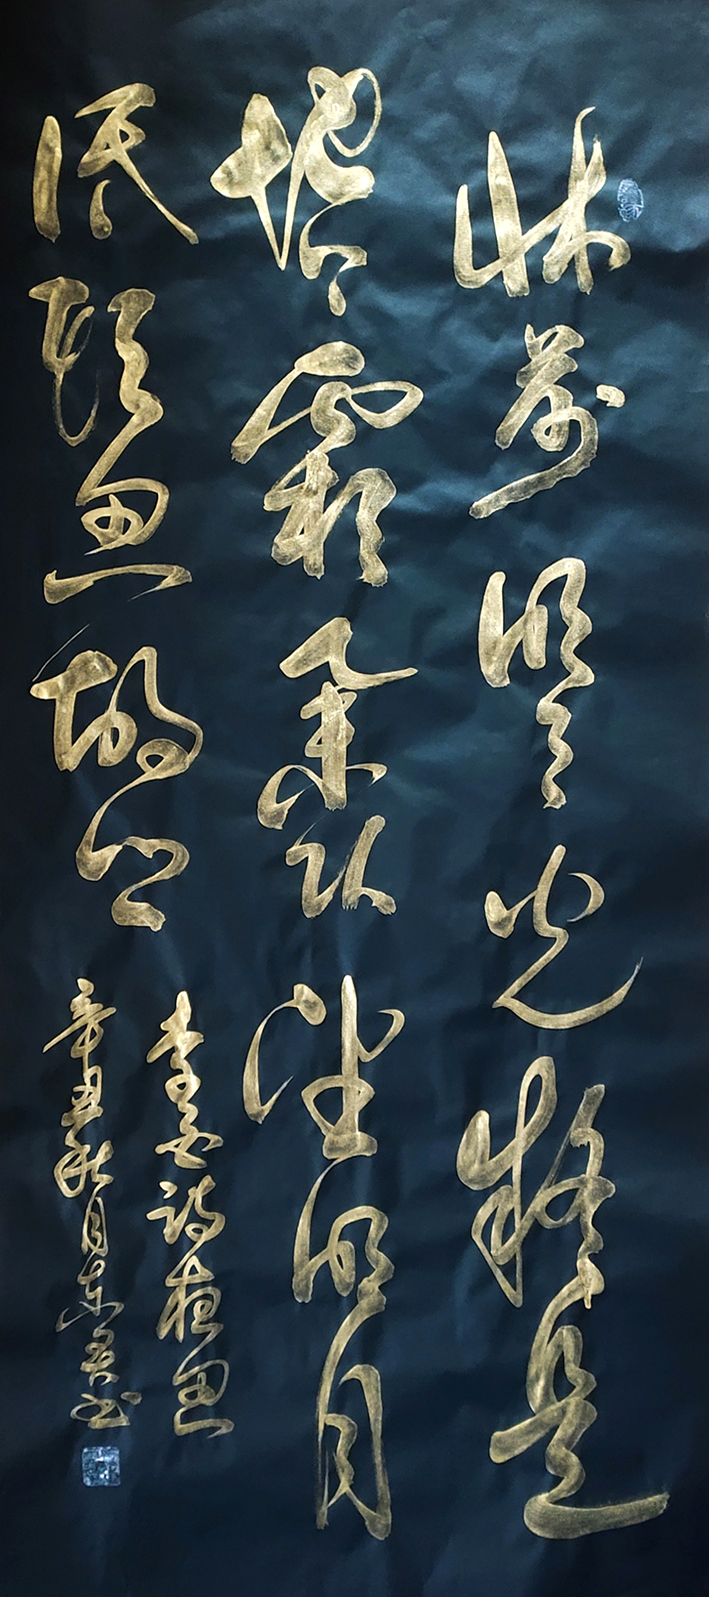 牀前明月光疑是
地上霜舉頭望明月
低頭思故鄉
李白詩夜思
辛丑秋月东书